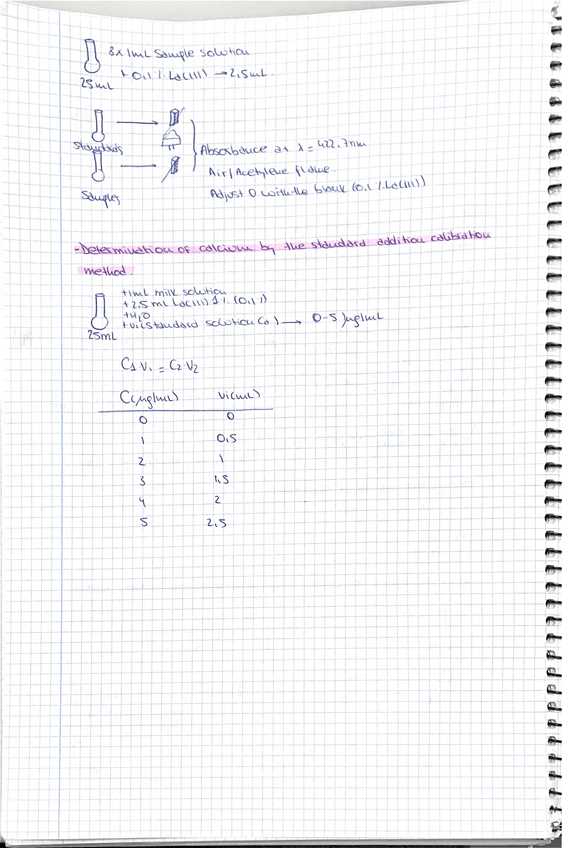 3x 1mL Sample solution
+ 0,1 % La(III) → 2,5mL.
25mL
Standards
Absorbance at λ = 422,7nm
Air/Acetylene flame.
Samples
Adjust 0 with the blank (0,1 % La(III))
-Determination of calcium by the standard addition calibration
method.
+1mL milk solution
+2,5 mL La(III) 1% (0,1%)
+H2O
+Vi (standard solution Ca) → 0-5 µg/mL
25mL
C1 V1 = C2 V2
C(µg/mL) Vi(mL)
0 0
1 0,5
2 1
3 1,5
4 2
5 2,5